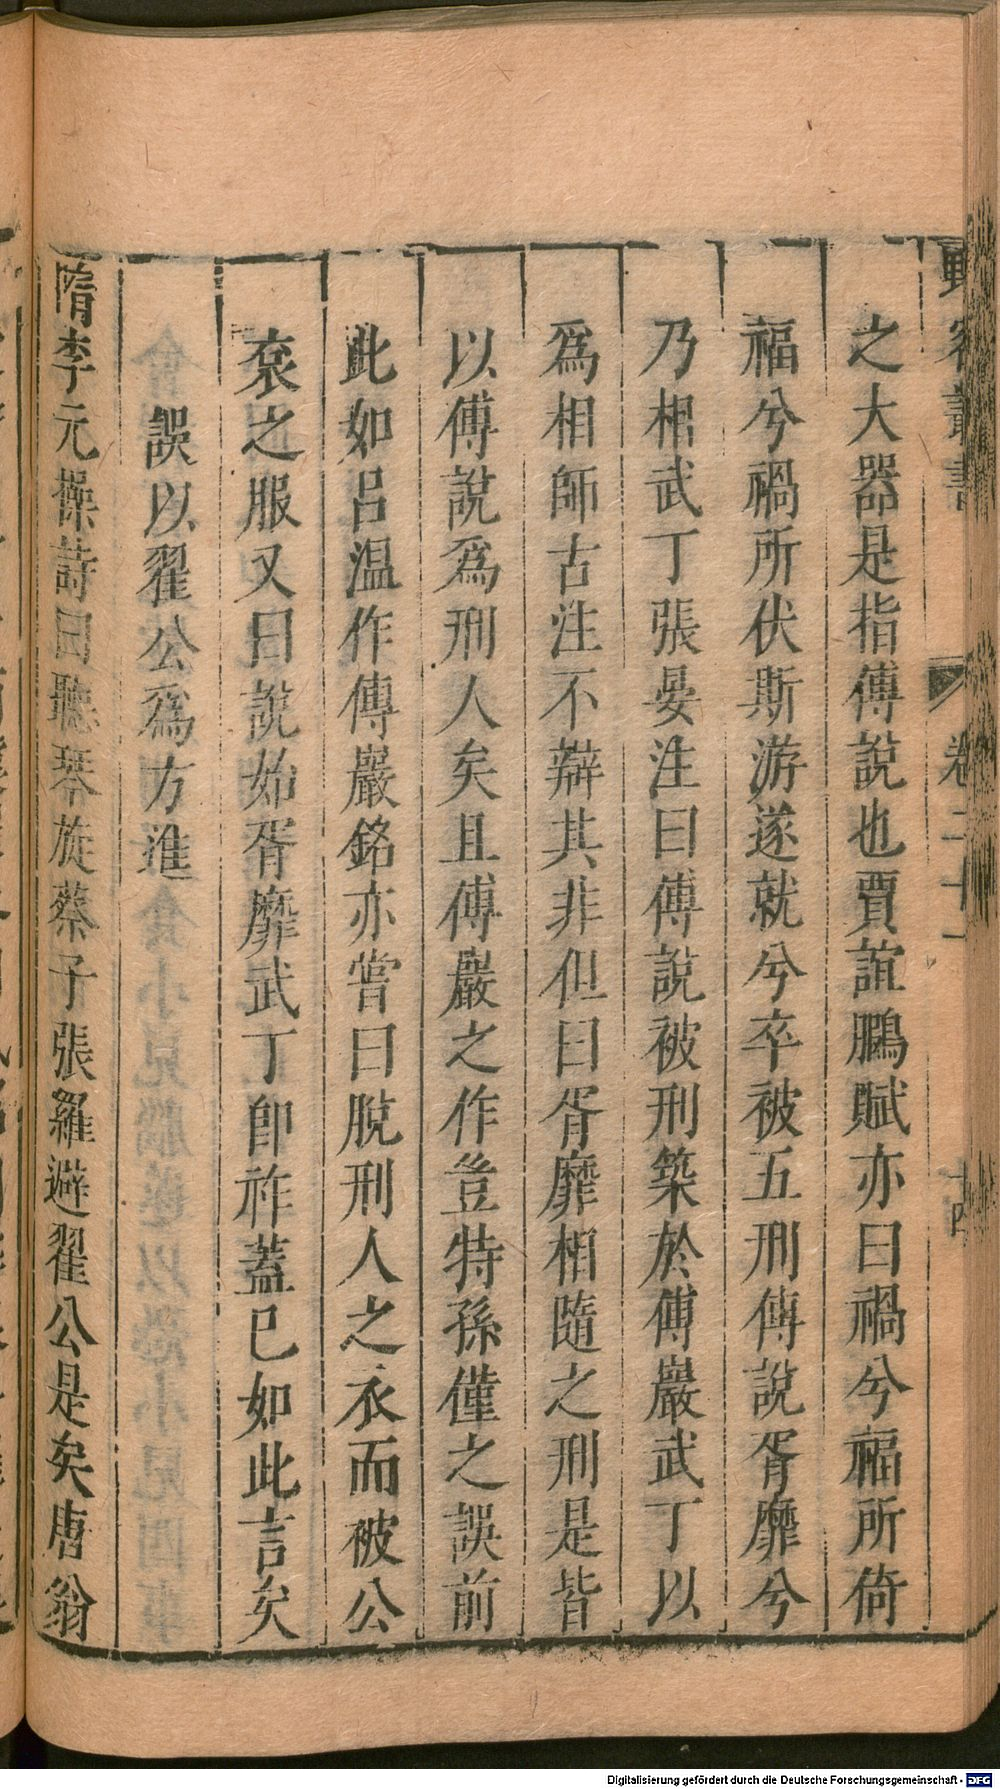 野客叢書 卷二十一 十四
之大器是指傅說也賈誼鵩賦亦曰禍兮福所倚
福兮禍所伏斯游遂就兮卒被五刑傅說胥靡兮
乃相武丁張晏注曰傅說被刑築於傅巖武丁以
爲相師古注不辯其非但曰胥靡相隨之刑是皆
以傅說爲刑人矣且傅巖之作豈特孫僅之誤前
此如呂溫作傅巖銘亦嘗曰脫刑人之衣而被公
袞之服又曰說始胥靡武丁卽祚蓋已如此言矣
誤以翟公爲方進
隋李元操詩曰聽琴旋蔡子張羅避翟公是矣唐翁
Digitalisierung gefördert durch die Deutsche Forschungsgemeinschaft - DFG